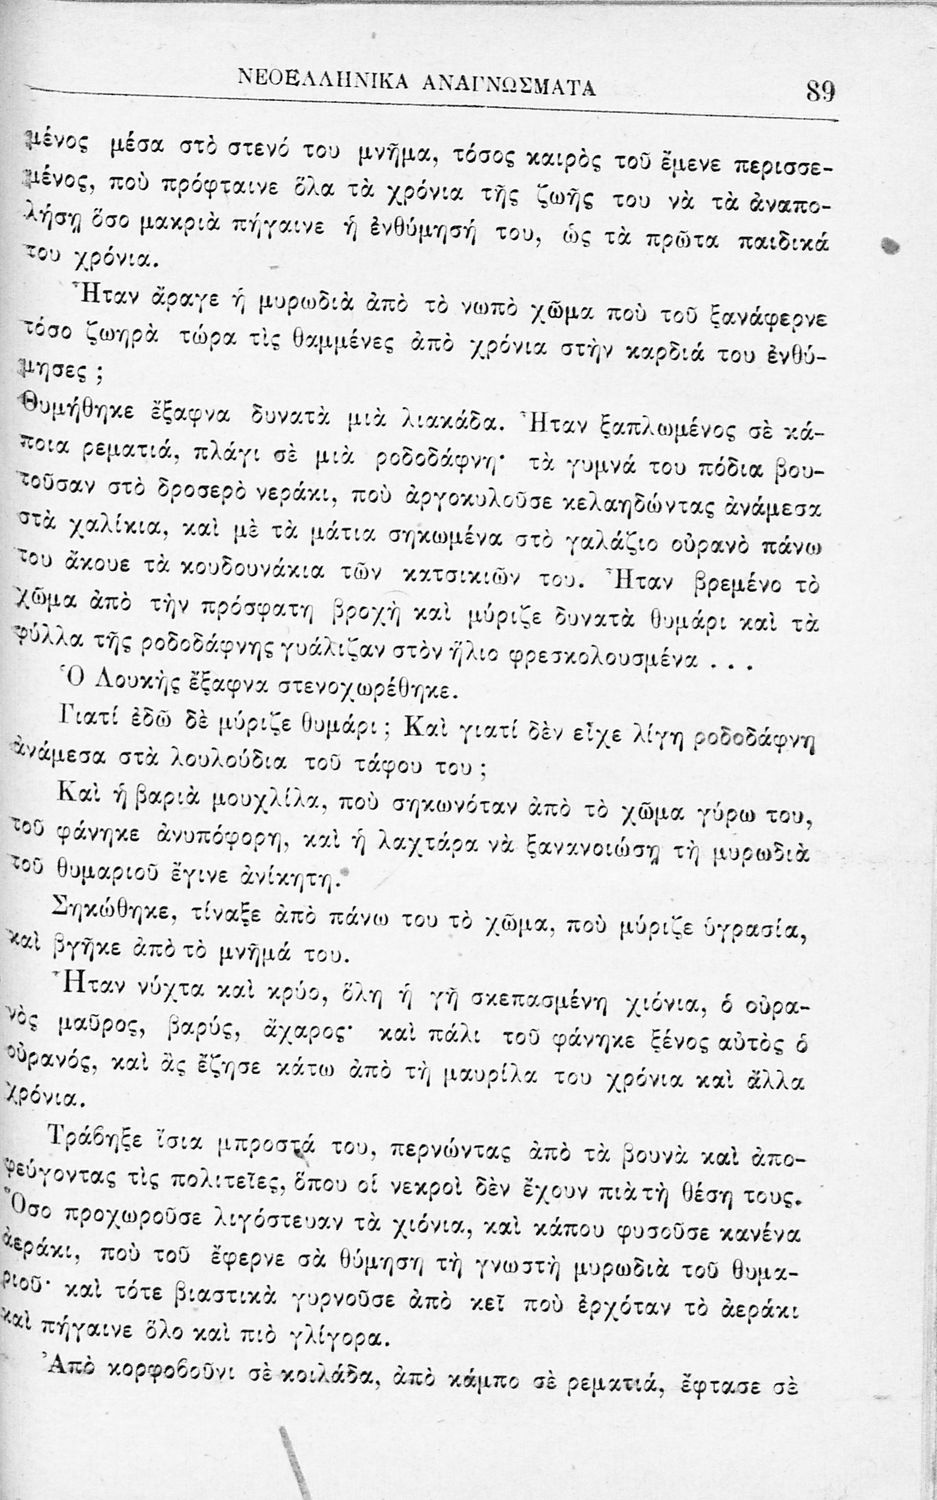 ΝΕΟΕΛΛΗΝΙΚΑ ΑΝΑΓΝΩΣΜΑΤΑ 89
μένος μέσα στὸ στενό του μνῆμα, τόσος καιρὸς τοῦ ἔμενε περισσε-
μένος, ποὺ πρόφταινε ὅλα τὰ χρόνια τῆς ζωῆς του νὰ τὰ ἀναπο-
λήσῃ ὅσο μακριὰ πήγαινε ἡ ἐνθύμησή του, ὡς τὰ πρῶτα παιδικά
του χρόνια.
Ἦταν ἄραγε ἡ μυρωδιὰ ἀπὸ τὸ νωπὸ χῶμα ποὺ τοῦ ξανάφερνε
τόσο ζωηρὰ τώρα τὶς θαμμένες ἀπὸ χρόνια στὴν καρδιά του ἐνθύ-
μησες ;
Θυμήθηκε ἔξαφνα δυνατὰ μιὰ λιακάδα. Ἦταν ξαπλωμένος σὲ κά-
ποια ρεματιά, πλάγι σὲ μιὰ ροδοδάφνη· τὰ γυμνά του πόδια βου-
τοῦσαν στὸ δροσερὸ νεράκι, ποὺ ἀργοκυλοῦσε κελαηδώντας ἀνάμεσα
στὰ χαλίκια, καὶ μὲ τὰ μάτια σηκωμένα στὸ γαλάζιο οὐρανὸ πάνω
του ἄκουε τὰ κουδουνάκια τῶν κατσικιῶν του. Ἦταν βρεμένο τὸ
χῶμα ἀπὸ τὴν πρόσφατη βροχὴ καὶ μύριζε δυνατὰ θυμάρι καὶ τὰ
φύλλα τῆς ροδοδάφνης γυάλιζαν στὸν ἥλιο φρεσκολουσμένα . . .
Ὁ Λουκὴς ἔξαφνα στενοχωρέθηκε.
Γιατί ἐδῶ δὲ μύριζε θυμάρι ; Καὶ γιατί δὲν εἶχε λίγη ροδοδάφνη
ἀνάμεσα στὰ λουλούδια τοῦ τάφου του ;
Καὶ ἡ βαριὰ μουχλίλα, ποὺ σηκωνόταν ἀπὸ τὸ χῶμα γύρω του,
τοῦ φάνηκε ἀνυπόφορη, καὶ ἡ λαχτάρα νὰ ξανανοιώσῃ τὴ μυρωδιὰ
τοῦ θυμαριοῦ ἔγινε ἀνίκητη.
Σηκώθηκε, τίναξε ἀπὸ πάνω του τὸ χῶμα, ποὺ μύριζε ὑγρασία,
καὶ βγῆκε ἀπὸ τὸ μνῆμά του.
Ἦταν νύχτα καὶ κρύο, ὅλη ἡ γῆ σκεπασμένη χιόνια, ὁ οὐρα-
νὸς μαῦρος, βαρύς, ἄχαρος· καὶ πάλι τοῦ φάνηκε ξένος αὐτὸς ὁ
οὐρανός, καὶ ἂς ἔζησε κάτω ἀπὸ τὴ μαυρίλα του χρόνια καὶ ἄλλα
χρόνια.
Τράβηξε ἴσια μπροστά του, περνώντας ἀπὸ τὰ βουνὰ καὶ ἀπο-
φεύγοντας τὶς πολιτεῖες, ὅπου οἱ νεκροὶ δὲν ἔχουν πιὰ τὴ θέση τους.
Ὅσο προχωροῦσε λιγόστευαν τὰ χιόνια, καὶ κάπου φυσοῦσε κανένα
ἀεράκι, ποὺ τοῦ ἔφερνε σὰ θύμηση τὴ γνωστὴ μυρωδιὰ τοῦ θυμα-
ριοῦ· καὶ τότε βιαστικὰ γυρνοῦσε ἀπὸ κεῖ ποὺ ἐρχόταν τὸ ἀεράκι
καὶ πήγαινε ὅλο καὶ πιὸ γλίγορα.
Ἀπὸ κορφοβοῦνι σὲ κοιλάδα, ἀπὸ κάμπο σὲ ρεματιά, ἔφτασε σὲ